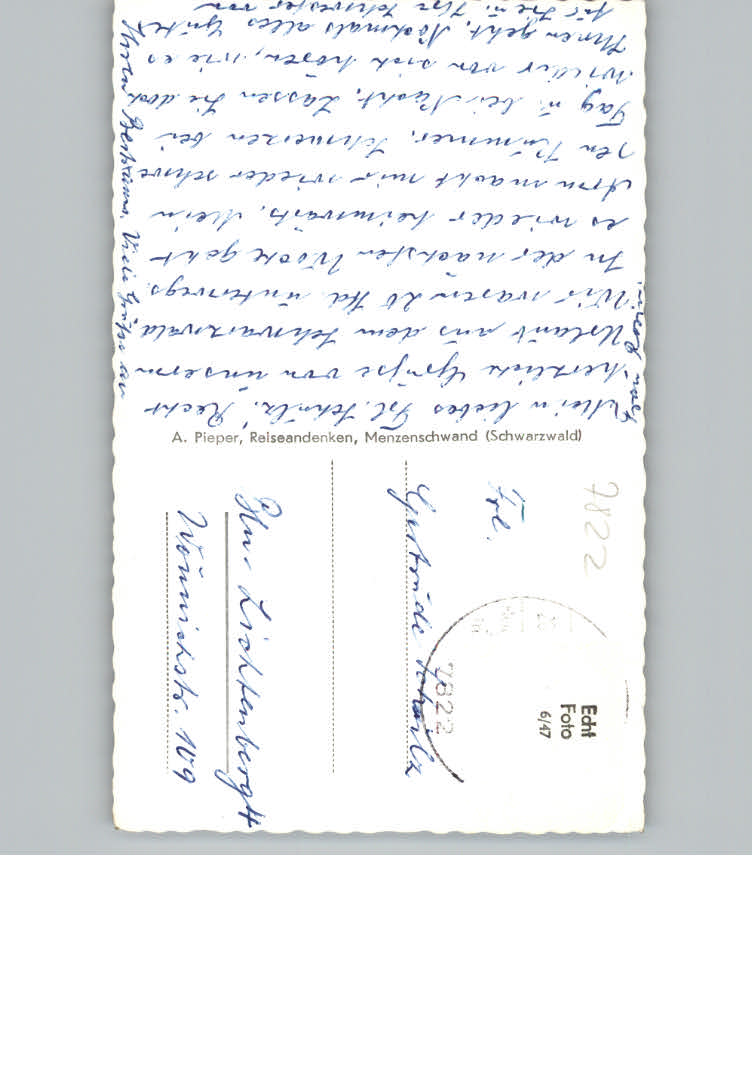 Mein liebes Frl. Schulz, Recht
herzliche Grüße von unserm
Urlaub aus dem Schwarzwald
Wir waren 20 Std. unterwegs.
In der nächsten Woche geht
es wieder heimwärts. Mein
Arm macht mir wieder schwe
ren Kummer. Schmerzen bei
Tag u. bei Nacht. Lassen Sie doch
wieder von sich hören, wie es
Ihnen geht. Nochmals alles Gute
für Sie u. Ihre Schwester von
Ihrem Viele Grüße an
A. Pieper, Reiseandenken, Menzenschwand (Schwarzwald)
7822
Echt
Foto
6/47
7822
Frl.
Gertrude Schulz
Bln. Lichtenberg 4
Wönnichstr. 109